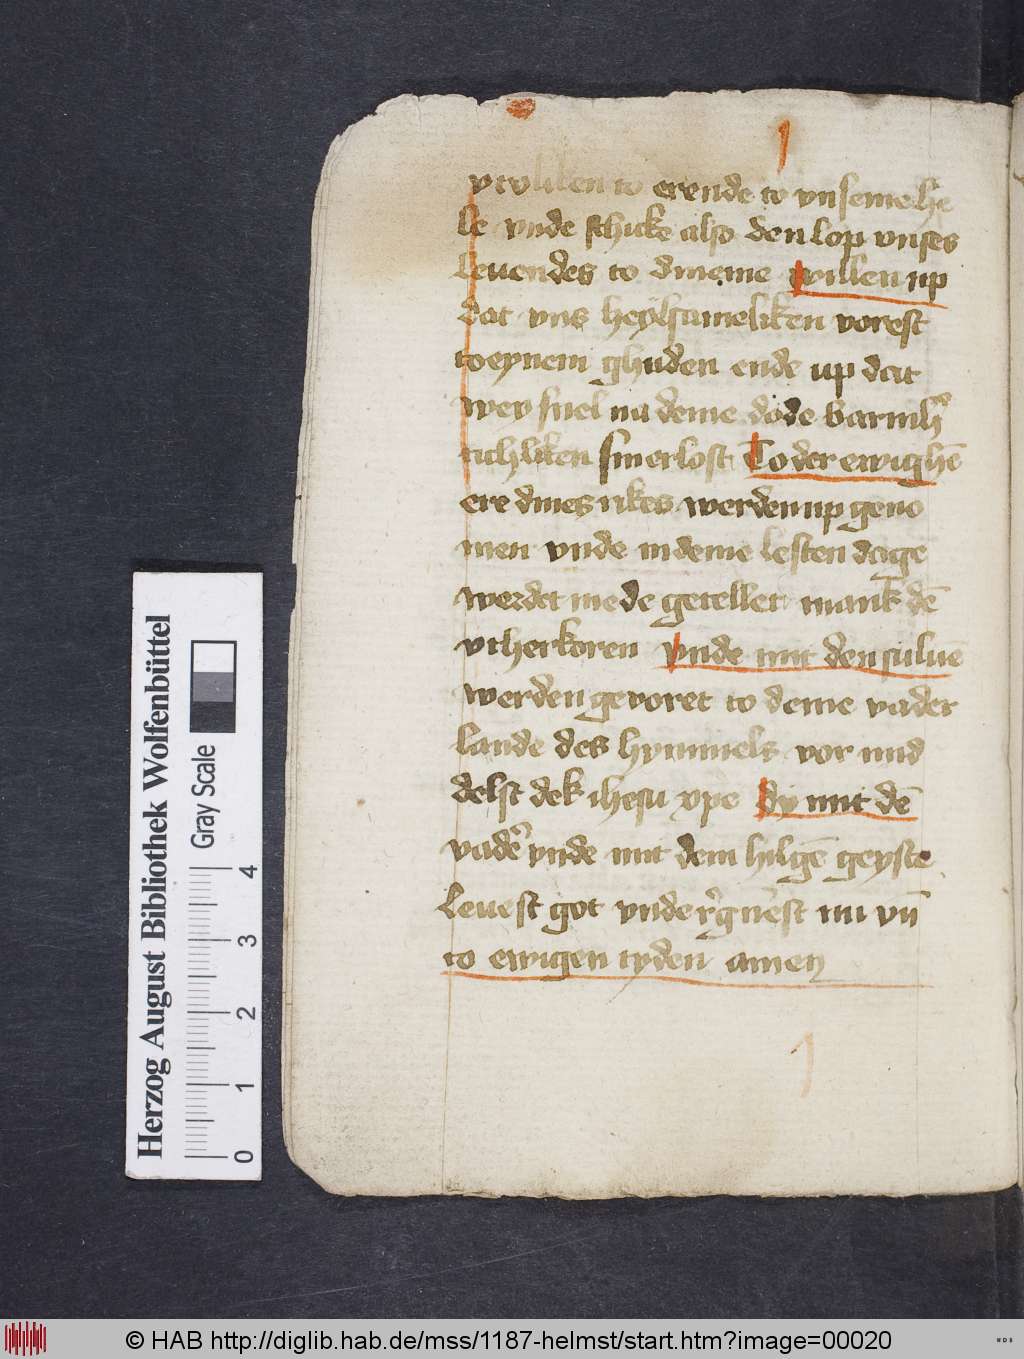 1
vtvliken to erende to vnseme he
le vnde schicke also den lop vnses
leuendes to dineme willen up
dat vns heylsameliken vorest
to eynem ghuden ende up dat
wey snel na deme dode barmh
richliken sin erlost To der ewighē
ere dines rikes werden up geno
men vnde in deme lesten dage
werdet mede getellet mank dē
vtherkoren vnde mit den suluē
werden gevoret to deme vader
lande des hymmels vor mid
delst dek ihesu xpe dy mit dē
vader vnde mit dem hilgē geyste
leuest got vnde rʼgnēst nu vn̄
to ewigen tyden amen
Herzog August Bibliothek Wolfenbüttel
Gray Scale
0 1 2 3 4
© HAB http://diglib.hab.de/mss/1187-helmst/start.htm?image=00020